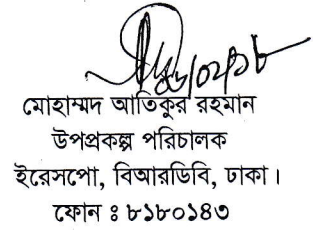 মোহাম্মদ আতিকুর রহমান
উপপ্রকল্প পরিচালক
ইরেসপো, বিআরডিবি, ঢাকা।
ফোন ঃ ৮১৮০১৪৩